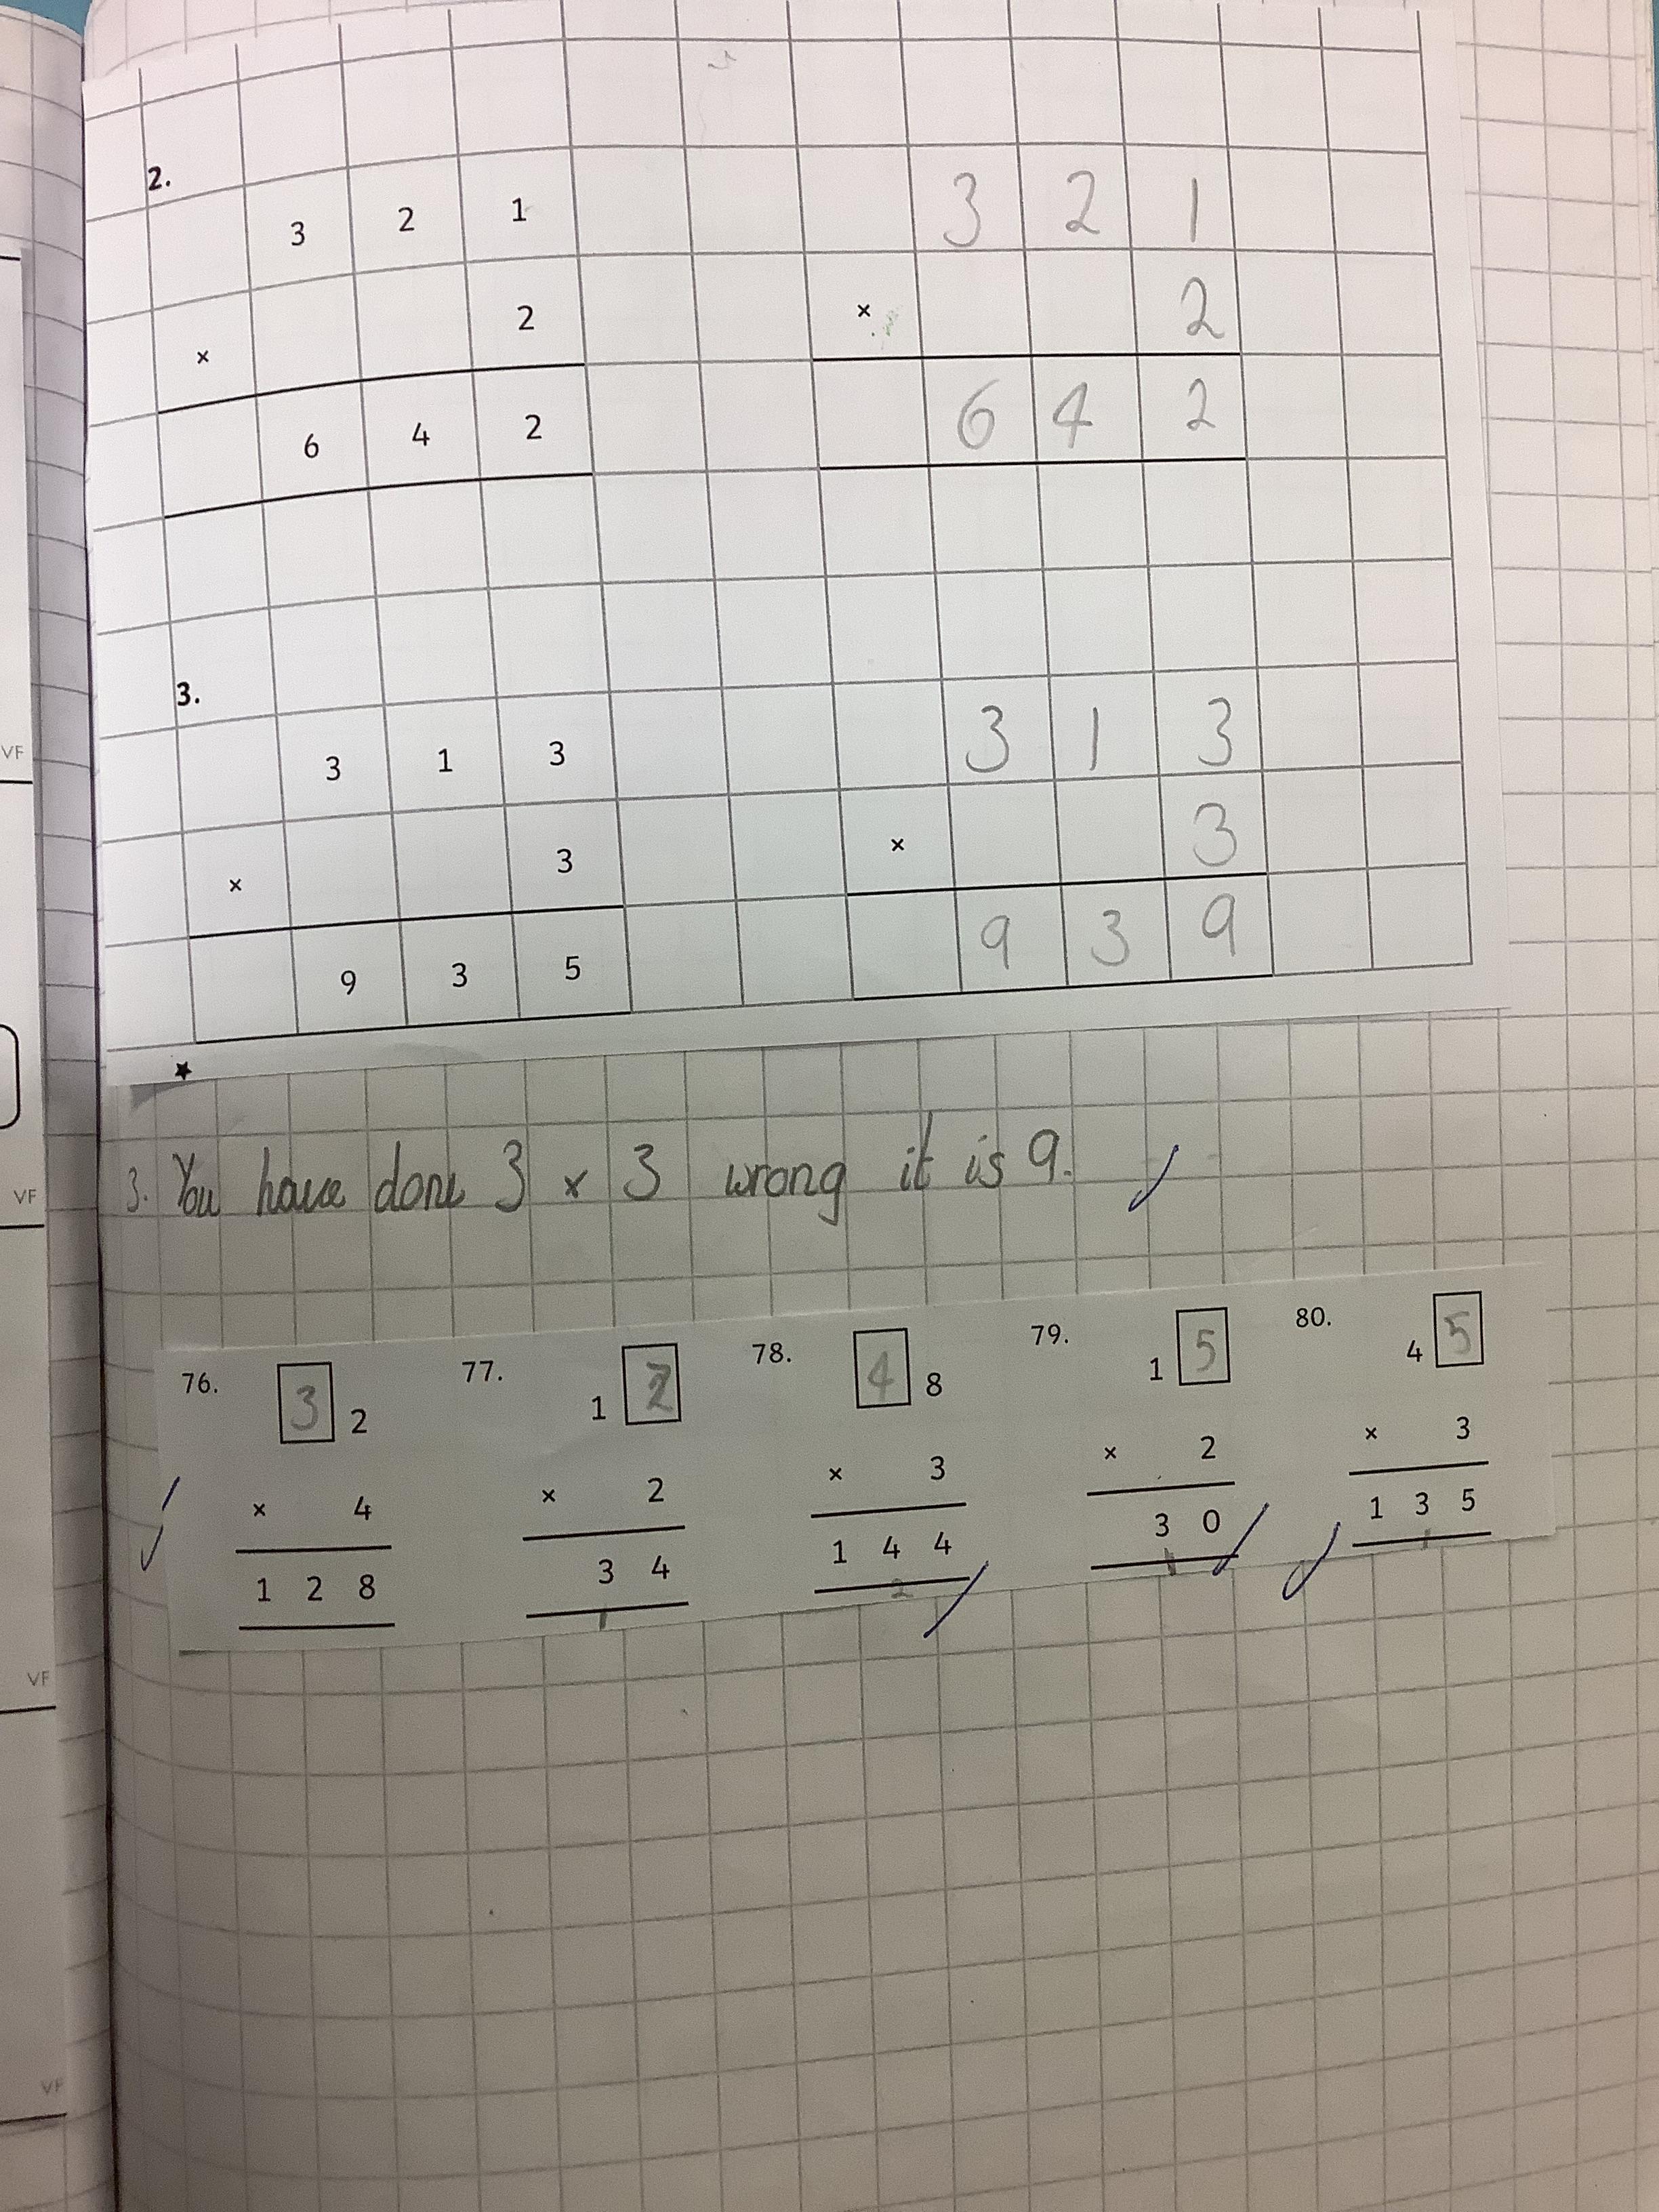 2.
3 2 1 3 2 1
× 2 × 2
6 4 2 6 4 2
3.
3 1 3 3 1 3
× 3 × 3
9 3 5 9 3 9
3. You have done 3 × 3 wrong it is 9.
76. 3 2
× 4
1 2 8
77. 1
× 2
3 4
1
78. 4 8
× 3
1 4 4
2
79. 1 5
× 2
3 0
1
80. 4 5
× 3
1 3 5
1
VF
VF
VF
VF